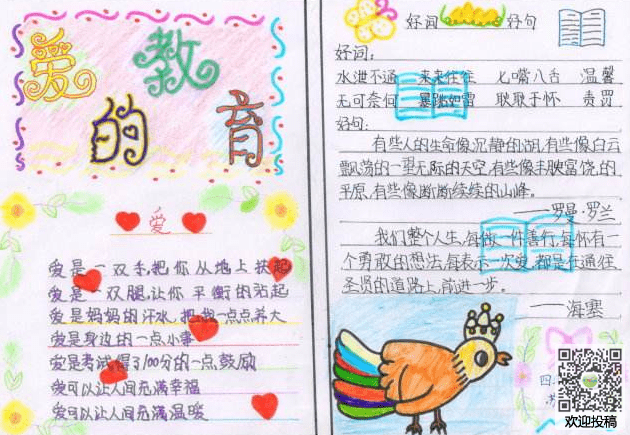 爱的教育
爱
爱是一双手,把你从地上扶起
爱是一双腿,让你平衡的站起
爱是妈妈的汗水,把我一点点养大
爱是身边的一点小事
爱是考试得了100分的一点鼓励
爱可以让人间充满幸福
爱可以让人间充满温暖
好词 好句
好词:
水泄不通 来来往往 七嘴八舌 温馨
无可奈何 暴跳如雷 耿耿于怀 责罚
好句:
有些人的生命像沉静的湖,有些像白云
飘荡的一望无际的天空,有些像丰腴富饶的
平原,有些像断断续续的山峰。
——罗曼·罗兰
我们整个人生,每做一件善行,每怀有一
个勇敢的想法,每表示一次爱,都是在通往
圣贤的道路上,前进一步。
——海塞
四
欢迎投稿